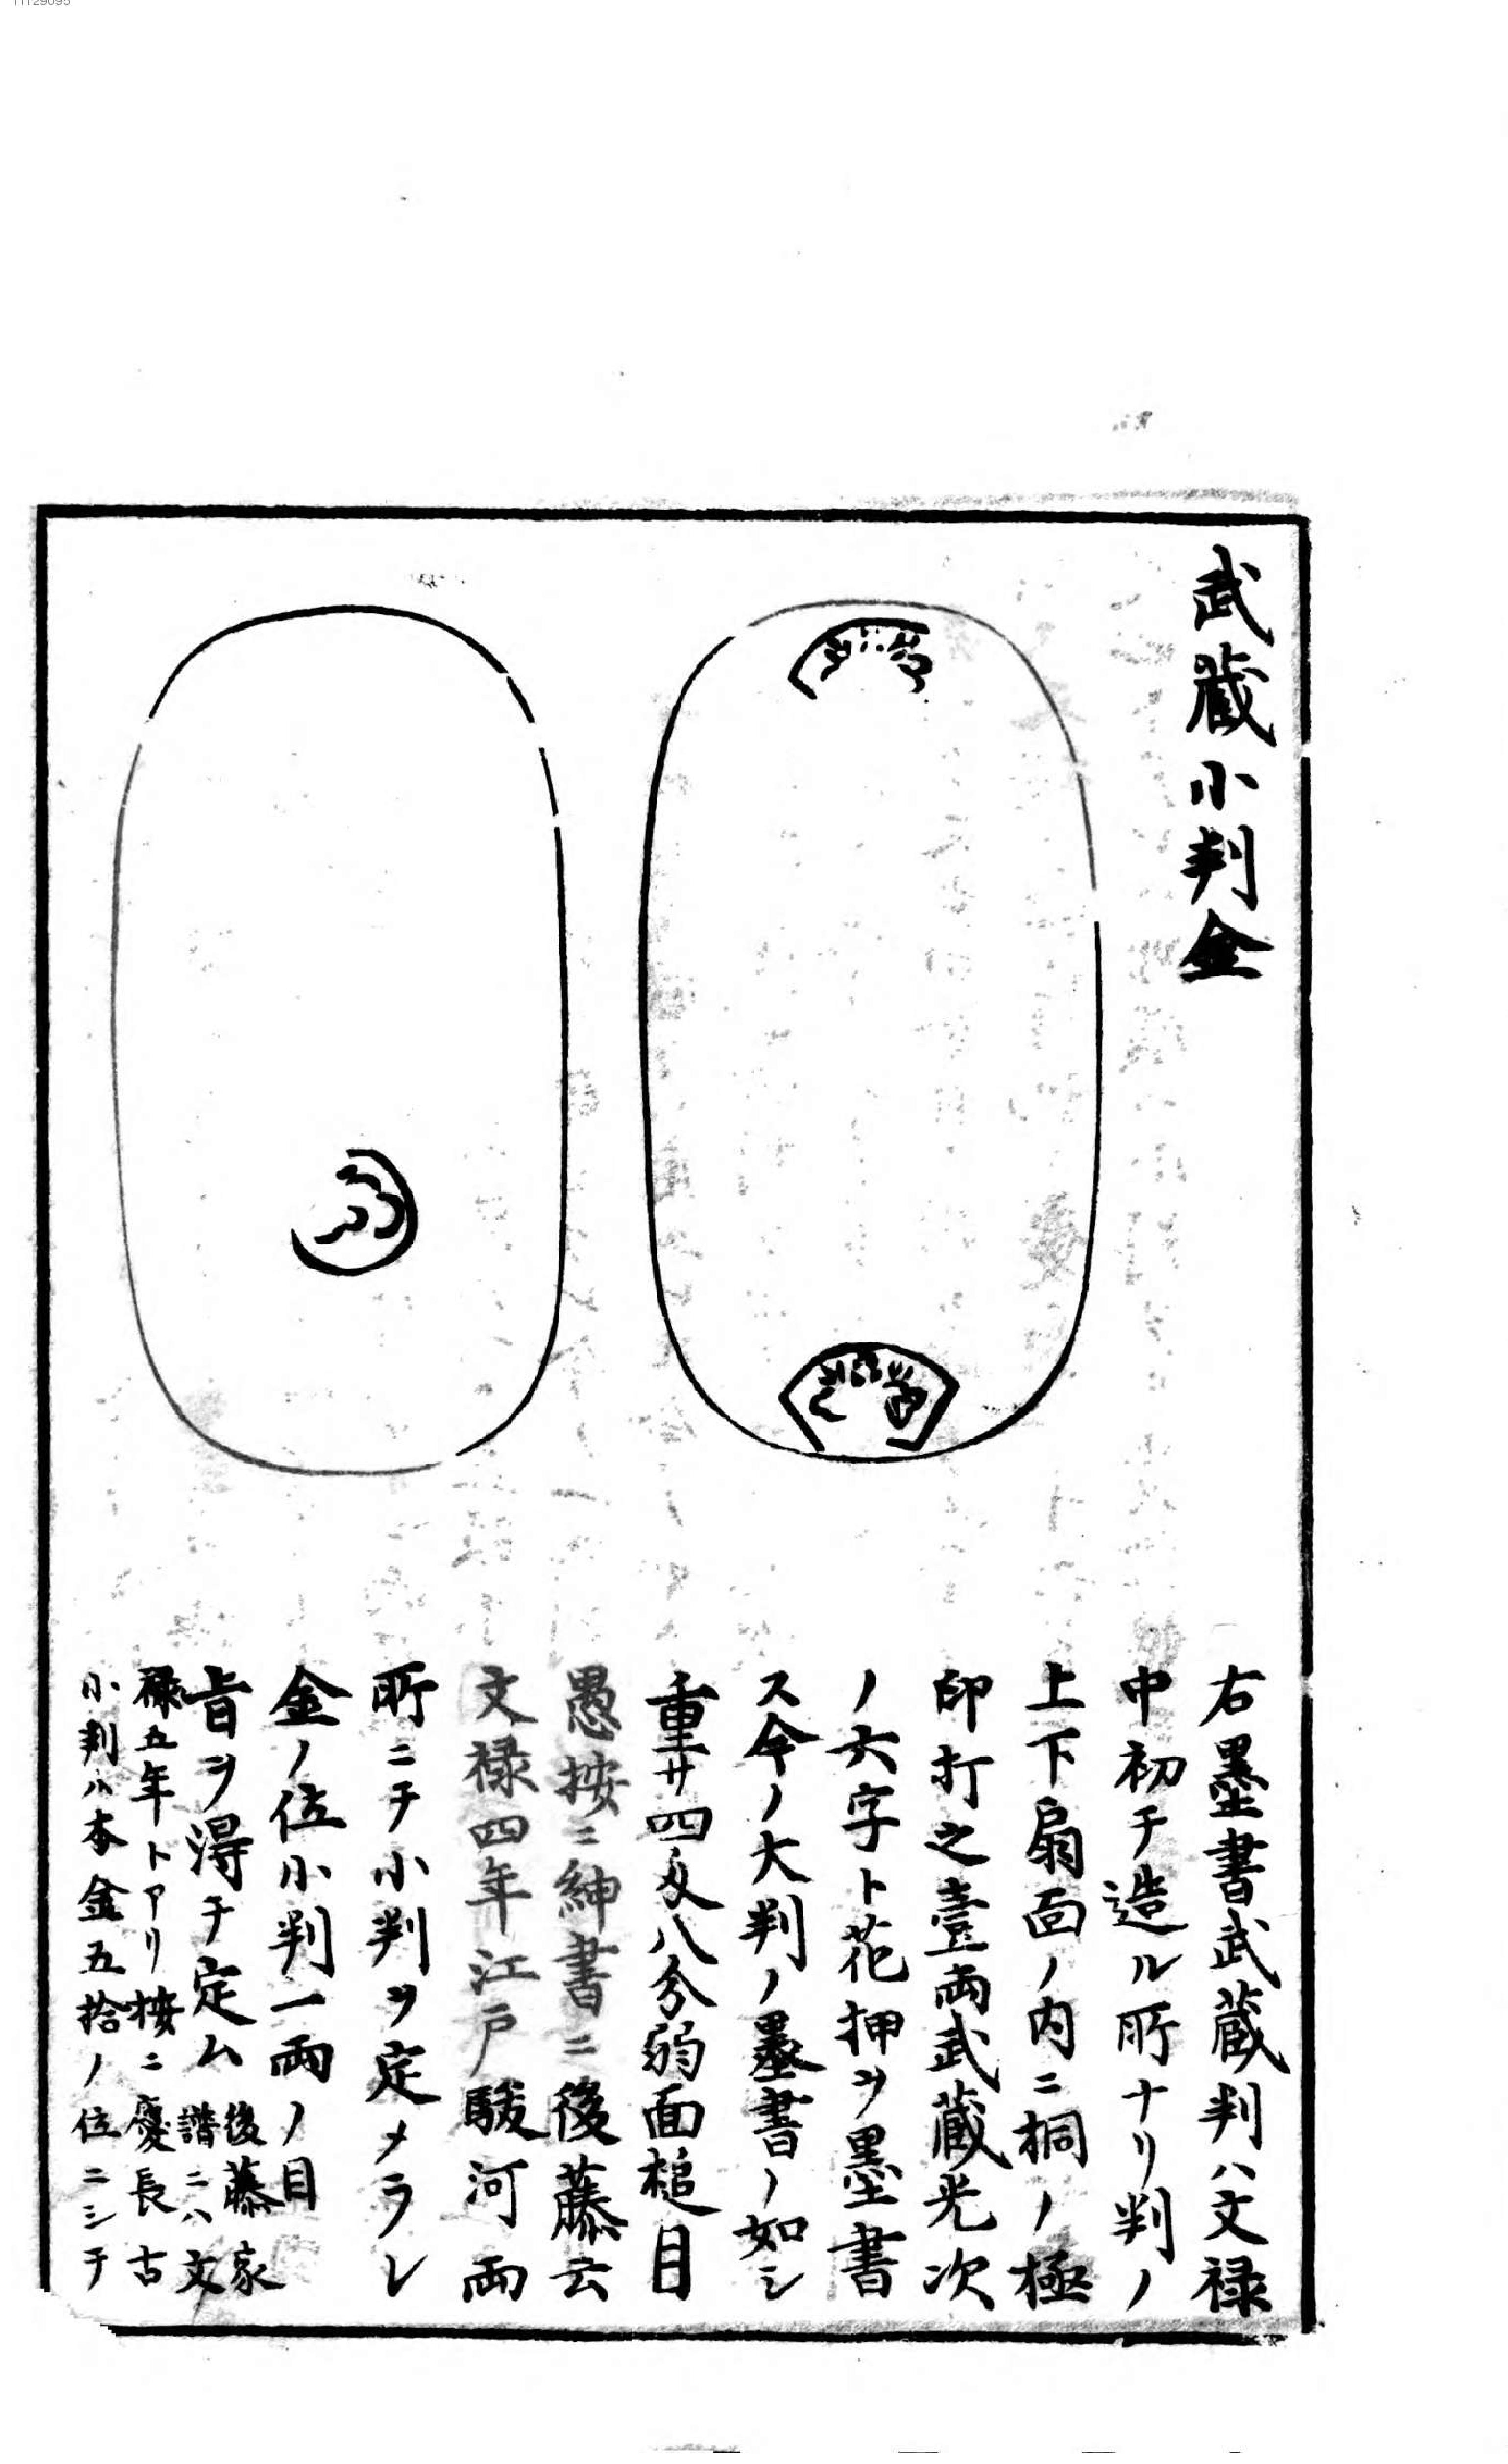 武蔵小判金
右墨書武蔵判ハ文禄
中初テ造ル所ナリ判ノ
上下扇面ノ内ニ桐ノ極
印打之壹両武蔵光次
ノ六字ト花押ヲ墨書
ス今ノ大判ノ墨書ノ如シ
重廿四匁八分弱面槌目
愚按ニ紳書ニ後藤云
文禄四年江戸駿河両
所ニテ小判ヲ定メラレ
金ノ位小判一両ノ目
旨ヲ得テ定ム
後藤家
譜ニハ文
禄五年トアリ按ニ慶長古
小判ハ本金五拾ノ位ニシテ
11129095